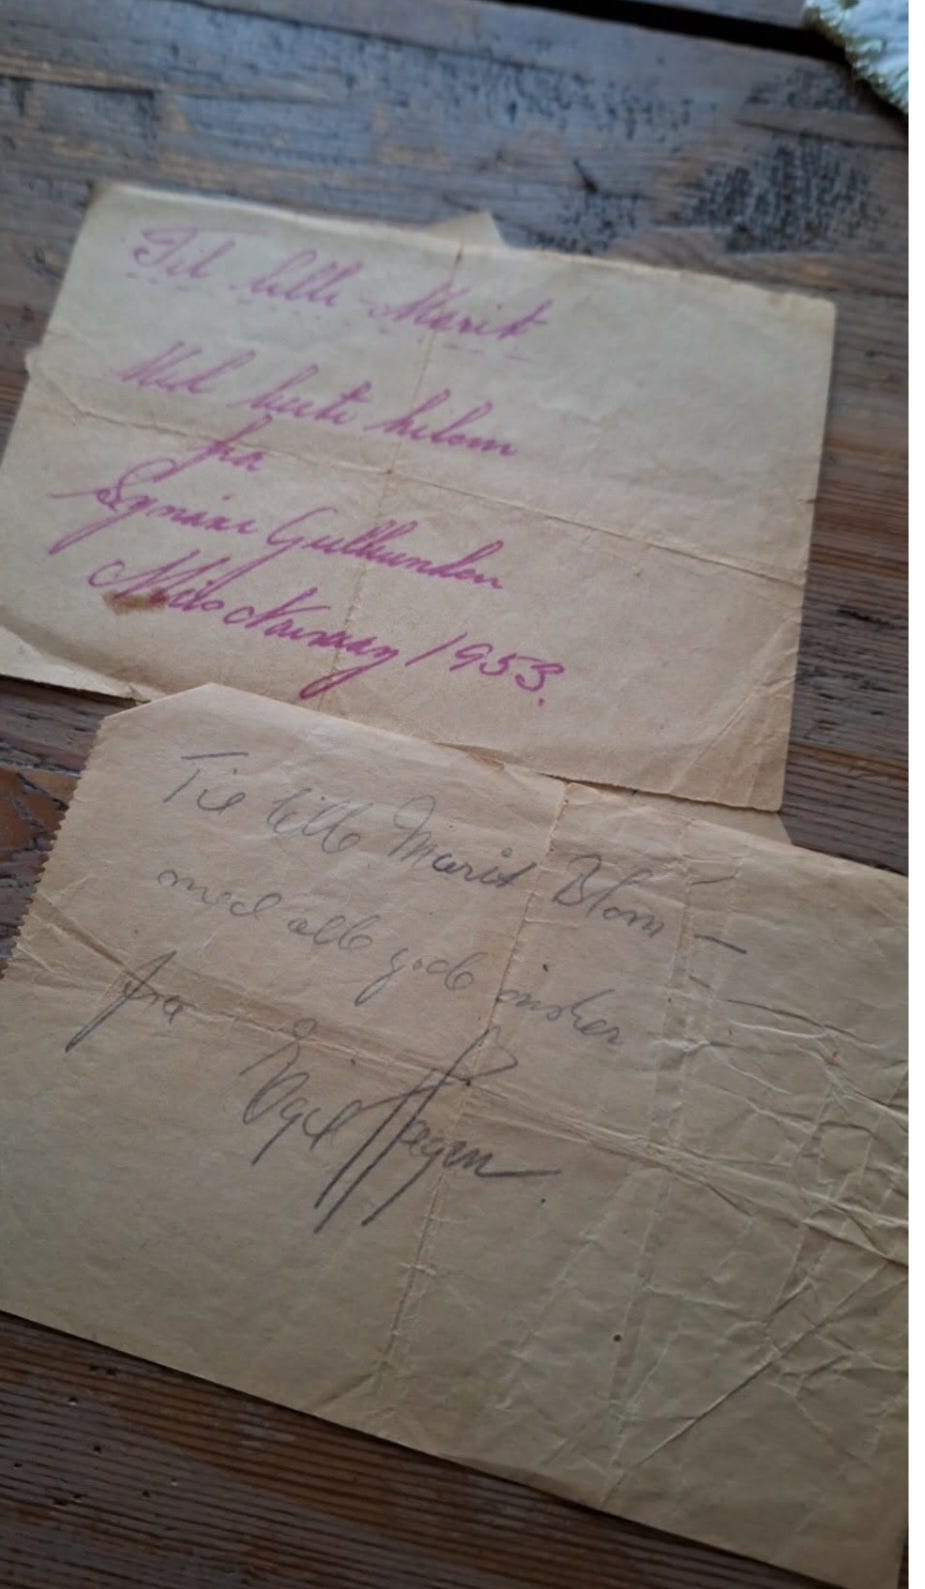 Til lille Marit
Med beste hilsen
fra
Gullhunden
1953.
Til lille Marit Blom —
med alle gode ønsker
fra
Egil Hagen